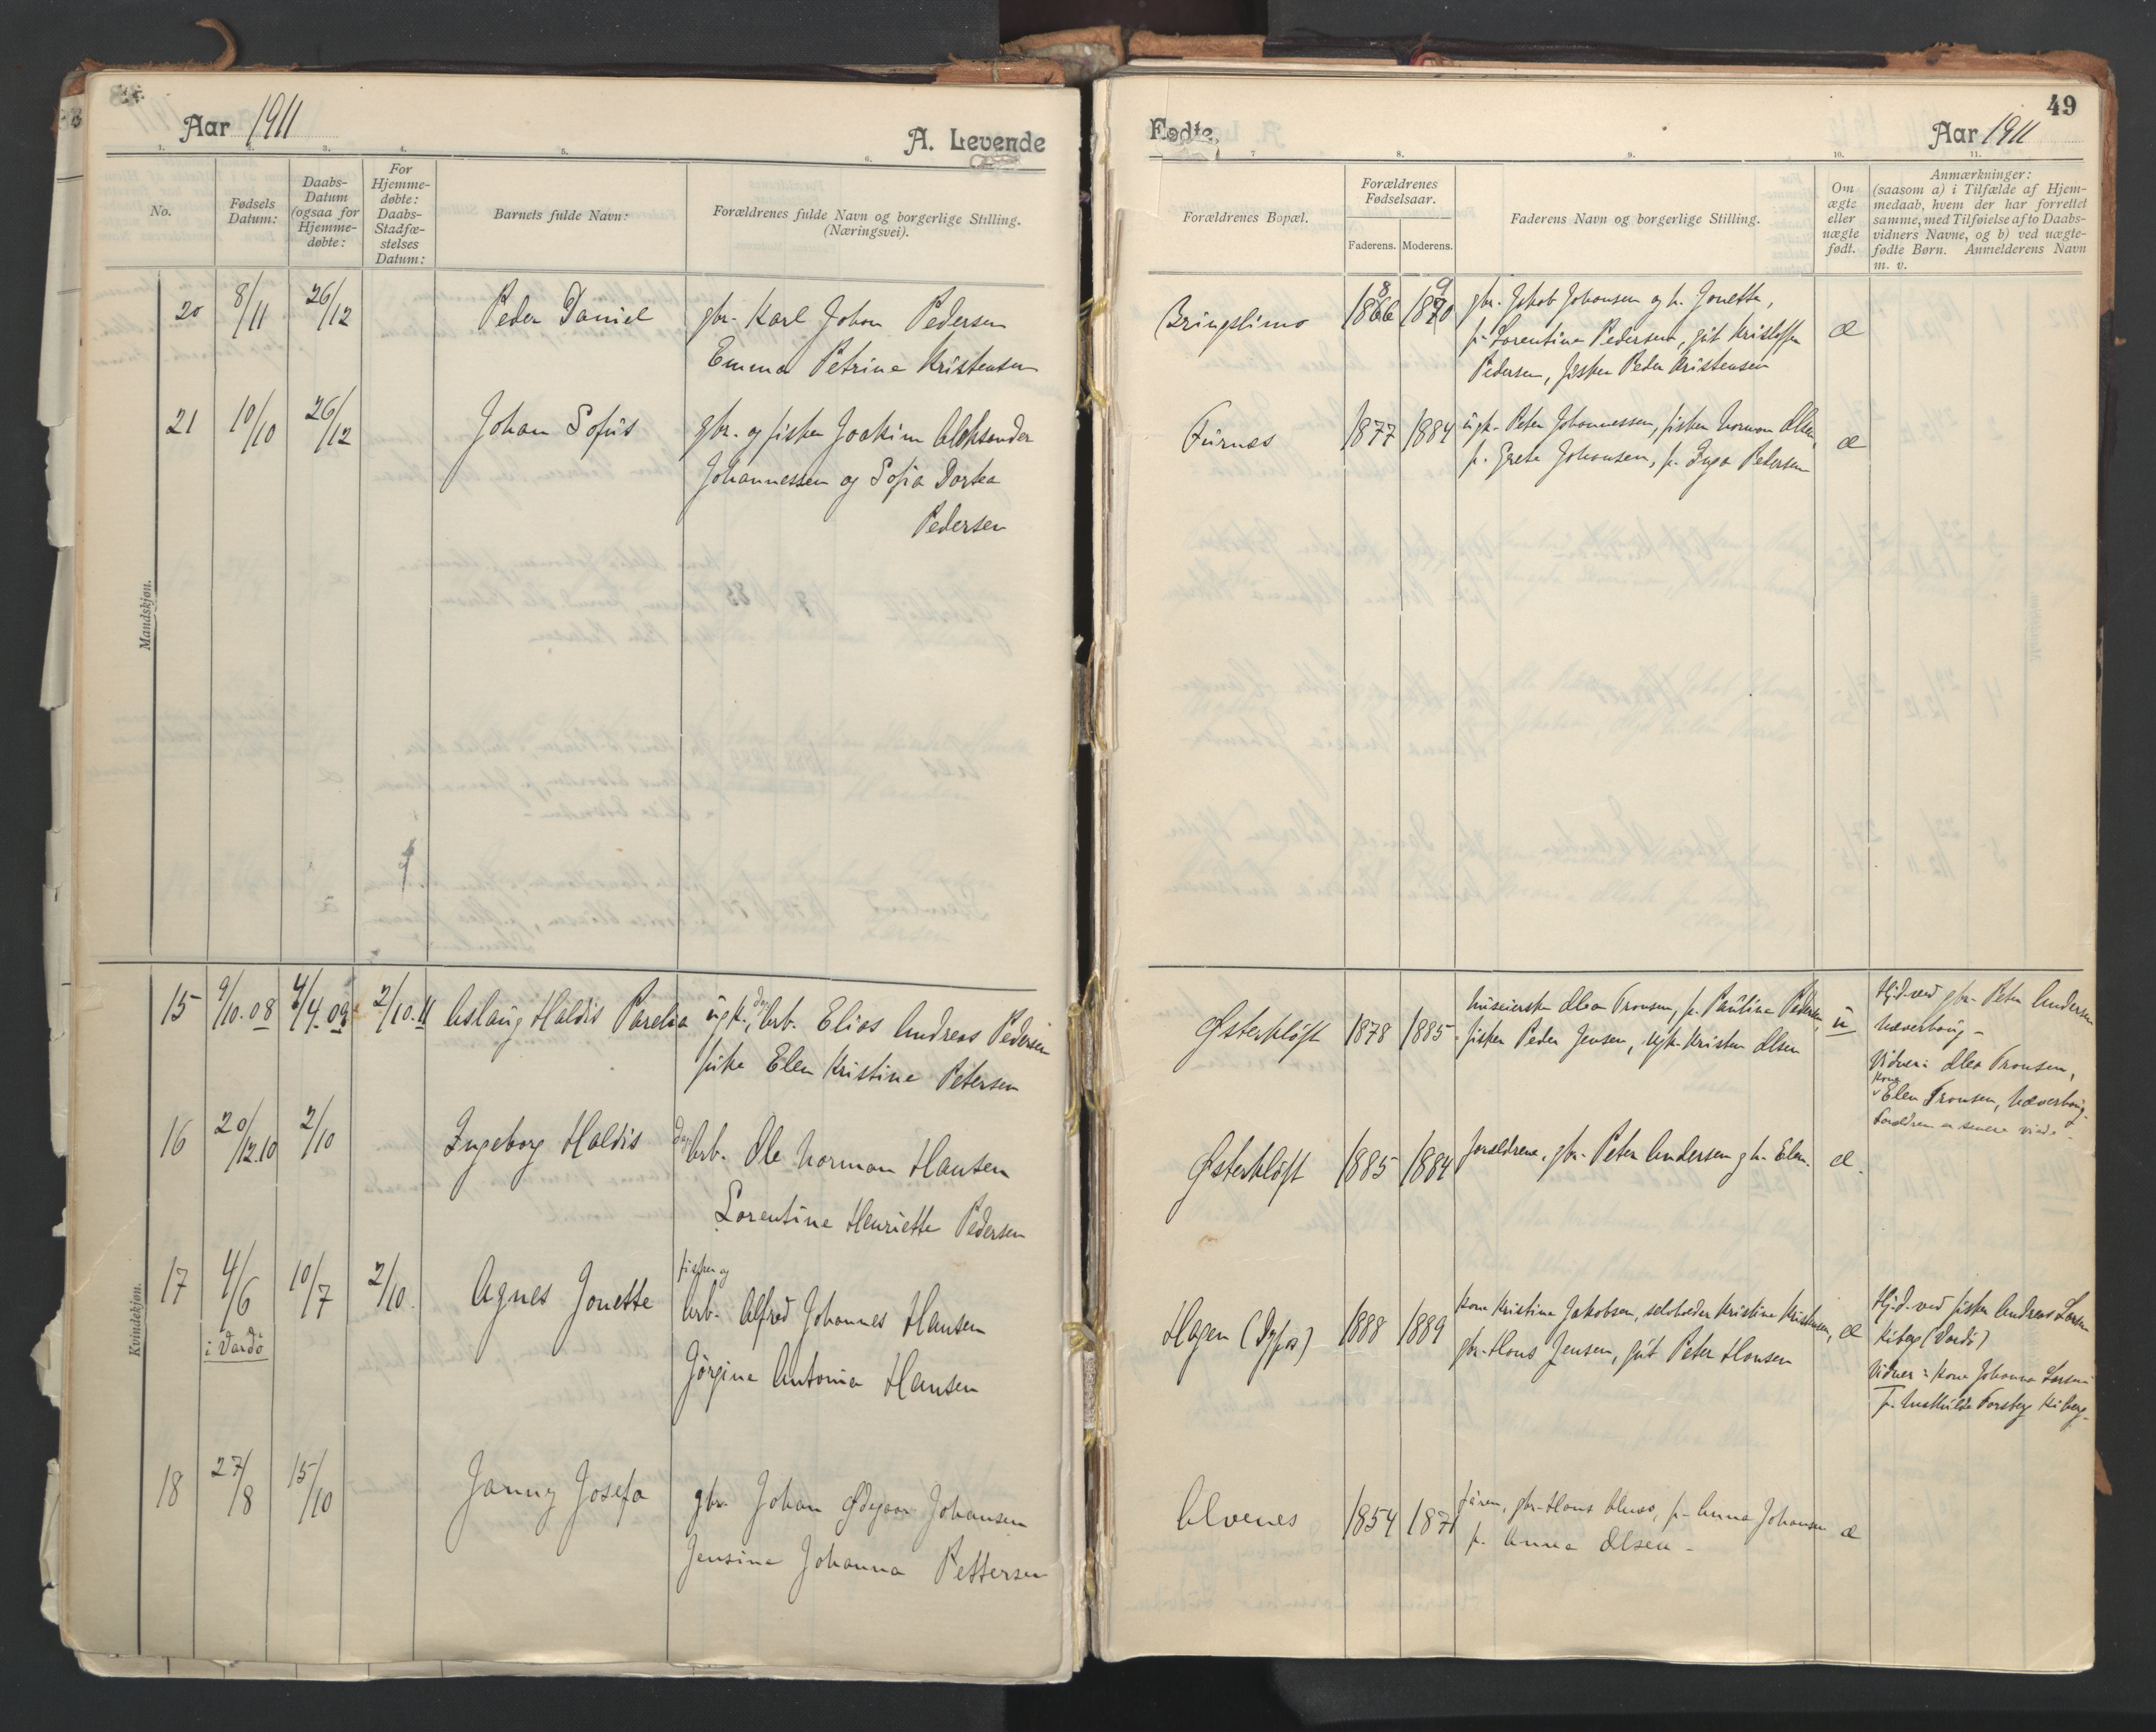 Aar 1911
A. Levende
1.
2.
3.
4.
5.
6.
No.
Fødsels
Datum:
Daabs-
Datum
(ogsaa for
Hjemme-
døbte:
For
Hjemme-
døbte:
Daabs-
Stadfæ-
stelses
Datum:
Barnets fulde Navn:
Forældrenes fulde Navn og borgerlige Stilling.
(Næringsvei).
Mandskjøn.
20 8/11 26/12 Peder Daniel gbr. Karl Johan Pedersen
Emma Petrine Kristensen
21 10/10 26/12 Johan Sofus gbr. og fisker Joakim Aleksander
Johannessen og Sofia Dortea
Pedersen
Kvindekjøn.
15 9/10.08 4/4.09 2/10.11 Aslaug Haldis Parelia ugk., dag arb. Elias Andreas Pedersen
pike Elen Kristine Petersen
16 20/12.10 2/10 Ingeborg Haldis dag arb. Ole Norman Hansen
Lorentine Henriette Pedersen
17 4/6 10/7 2/10. Agnes Jonette fisker og
arb. Alfred Johannes Hansen
i Vardö
Jörgine Antonia Hansen
18 27/8 15/10 Janny Josefa gbr. Johan Ødegaar Johansen
Jensine Johanna Pettersen
Fødte
49
Aar 1911
7
8.
9.
10.
11.
Forældrenes Bopæl.
Forældrenes
Fødselsaar.
Faderens.
Moderens.
Faderens Navn og borgerlige Stilling.
Om
ægte
eller
uægte
født.
Anmærkninger:
(saasom a) i Tilfælde af Hjem-
medaab, hvem der har forrettet
samme, med Tilføielse af to Daabs-
vidners Navne, og b) ved uægte-
fødte Børn. Anmelderens Navn
m. v.
Bringslimo 1866 8 1870 9 gbr. Jakob Johansen og h. Jonette,
p. Lorentine Pedersen, gut Kristoffer
Pedersen, fisker Peder Kristensen
æ
Furnes 1877 1884 ugk. Peter Johannessen, fisker Norman Olsen,
p. Grete Johansen, p. Inga Pedersen
æ
Østerkløft 1878 1885 Olea Tronsen, p. Paulina Pedersen,
fisker Peder Jensen, ugk. Kristen Olsen
u
Hj.d. ved gbr. Peter Andersen
Næverhaug -
Vidner: Olea Tronsen,
Kone
Elen Tronsen, Næverhaug.
Forældrene er senere viede.
Østerkløft 1885 1884 forældrene, gbr. Peter Andersen g h. Elen. æ.
Hagen ( ) 1888 1889 Kone Kristine Jakobsen, Kristine Kristensen,
gbr. Hans Jensen, gut Peter Hansen
æ
Hj.d. ved fisker Andreas Larsen
Kiberg (Vardö)
Vidner: Kone Johanna Larsen
p. Forsberg Kiberg.
Alvenes 1854 1871 faren, gbr. Hans , p. Anna Johansen
p. Anna Olsen -
æ